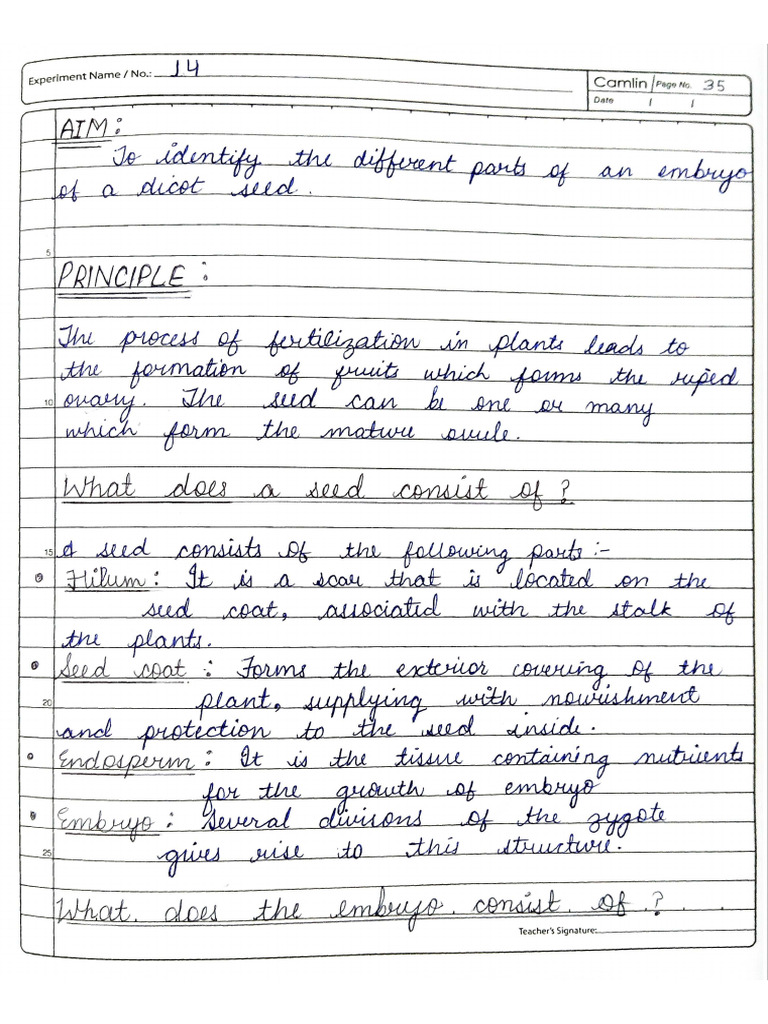 Experiment Name / No.: 14
Camlin Page No. 35
Date / /
AIM:
To identify the different parts of an embryo
of a dicot seed.
5
PRINCIPLE:
The process of fertilization in plants leads to
the formation of fruits which forms the riped
10 ovary. The seed can be one or many
which form the mature ovule.
What does a seed consist of?
15 A seed consists of the following parts:-
• Hilum: It is a scar that is located on the
seed coat, associated with the stalk of
the plants.
• Seed coat: Forms the exterior covering of the
20 plant, supplying with nourishment
and protection to the seed inside.
• Endosperm: It is the tissue containing nutrients
for the growth of embryo
• Embryo: Several divisons of the zygote
25 gives rise to this structure.
What does the embryo consist of?
Teacher's Signature: